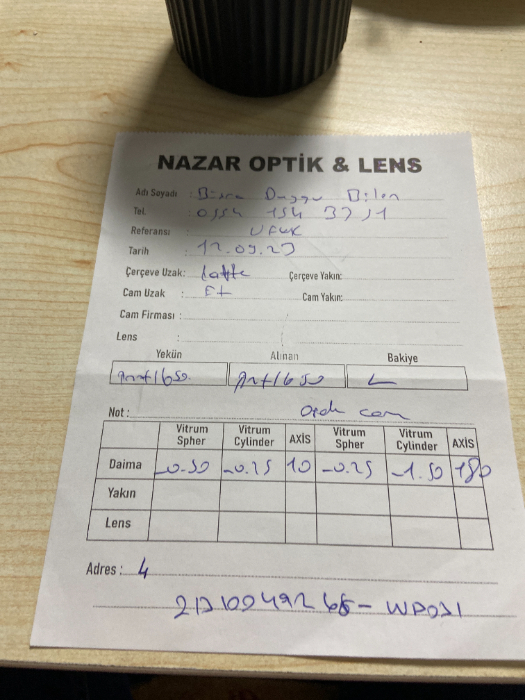 NAZAR OPTİK & LENS
Adı Soyadı : Büşra Duygu Bilen
Tel. : 0554 154 37 51
Referansı : Ufuk
Tarih : 12.09.23
Çerçeve Uzak: Çerçeve Yakın:
Cam Uzak : Cam Yakın:
Cam Firması :
Lens :
Yekün Alınan Bakiye
1650 1650
Not : cam
Vitrum Spher Vitrum Cylinder AXİS Vitrum Spher Vitrum Cylinder AXİS
Daima -0.50 -0.25 10 -0.25 -1.50 180
Yakın
Lens
Adres : 4